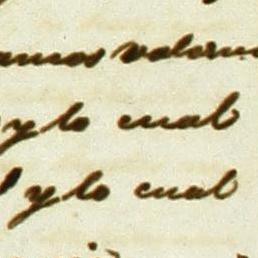 amos valorm
y lo cual
y lo cual